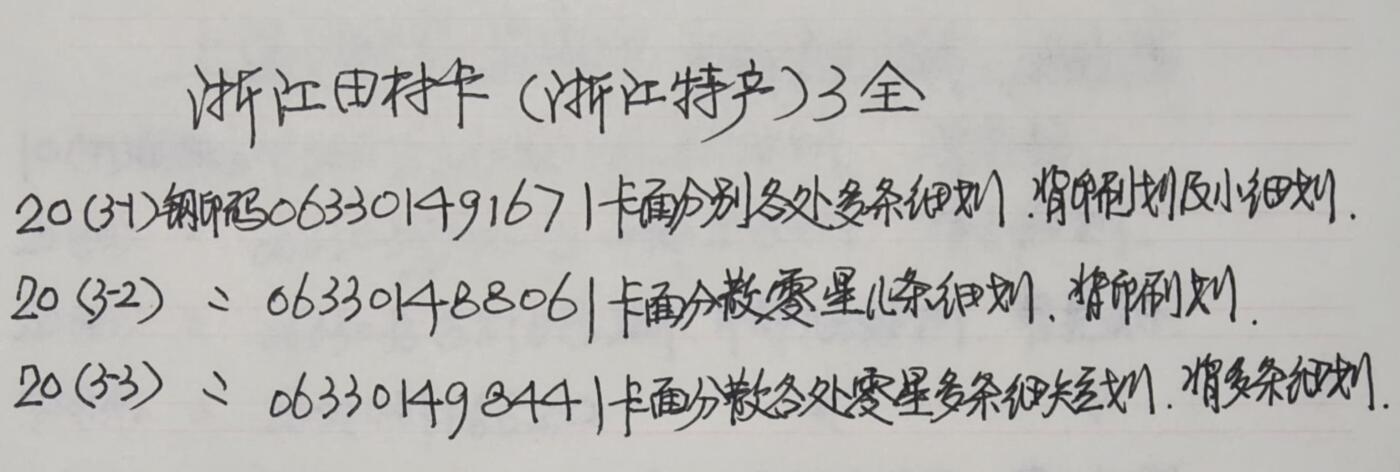 浙江田村卡（浙江特产）3全
20（3-1）钢印码063301491671卡面分别各处多条细划.背印刷划及小细划.
20（3-2） 〃 063301488061卡面分散零星几条细划.背印刷划.
20（3-3） 〃 063301498441卡面分散各处零星多条细短划.背多条细划.